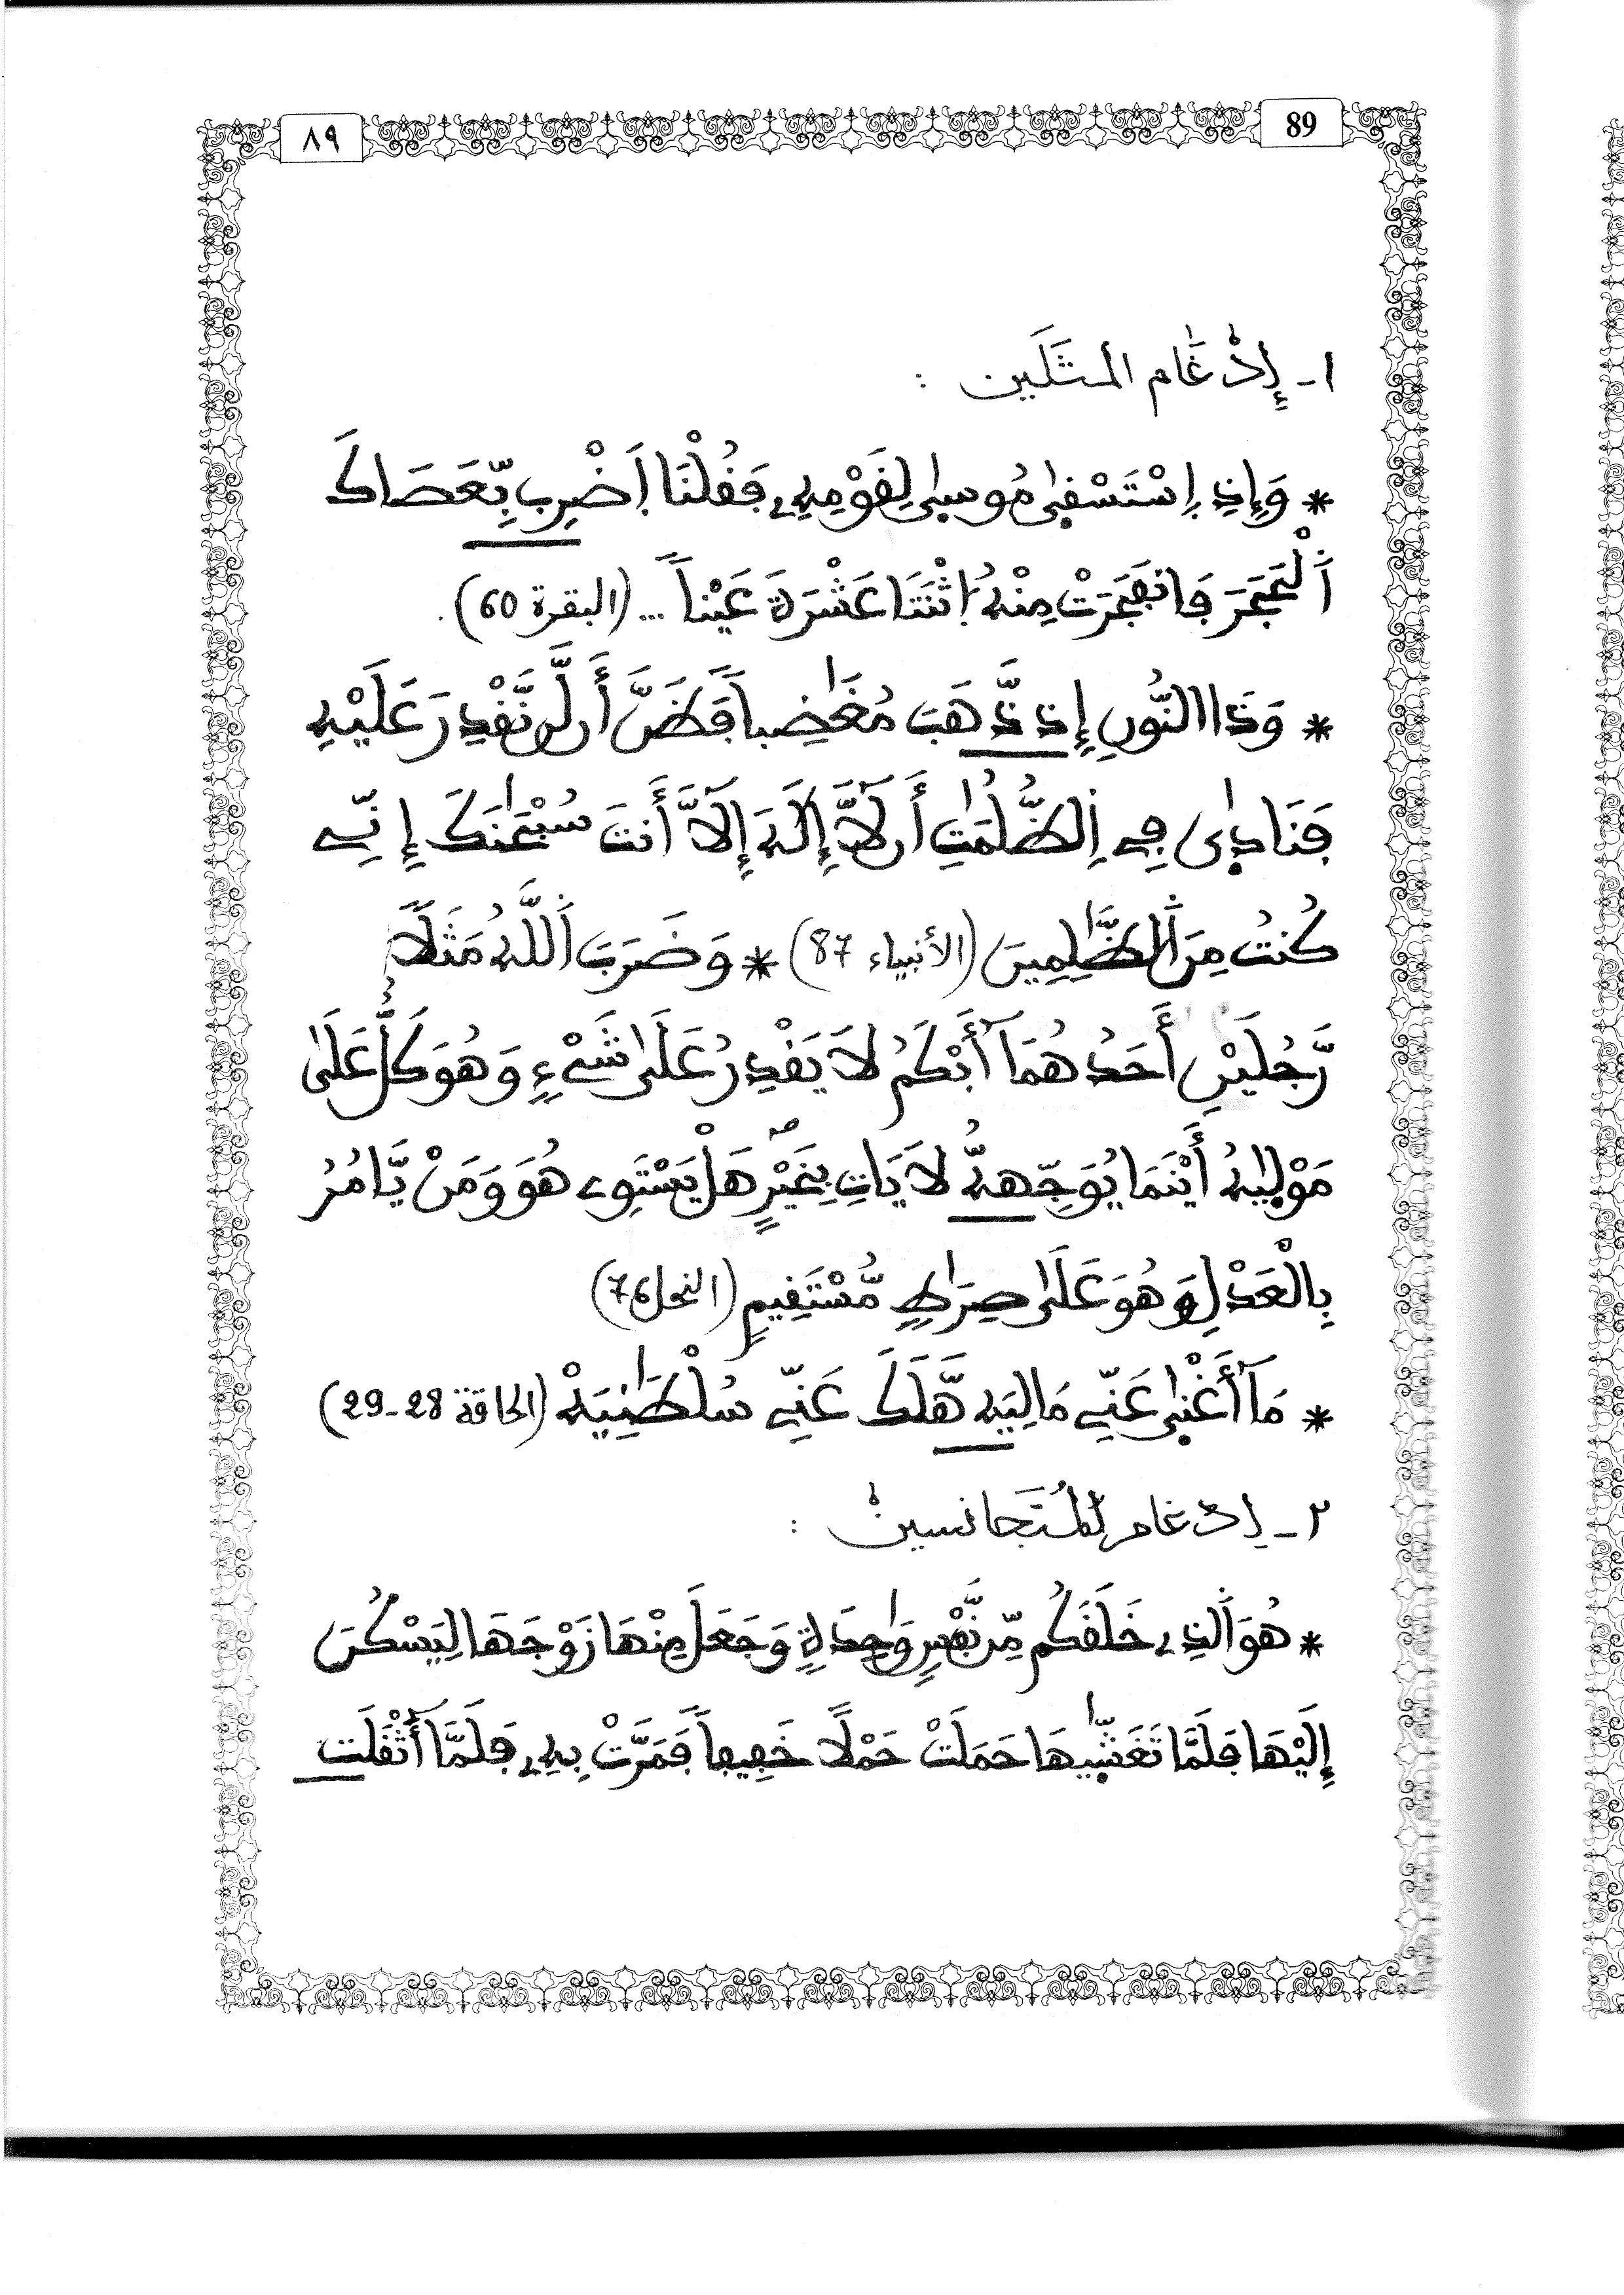 ٨٩
89
١ـ إِدْغَام المثَلَين :
* وَإِذِ اِسْتَسْقٜىٰ مُوسٜىٰ لِقَوْمِهِۦ فَقُلْنَا اَضْرِب بِّعَصَاكَ
اَ۬لْحَجَرَ فَانفَجَرَتْ مِنْهُ اُ۪ثْنَتَا عَشْرَةَ عَيْناٗ ... (البقرة 60).
* وَذَا اَلنُّونِ إِذ ذَّهَبَ مُغَٰضِباٗ فَظَنَّ أَن لَّن نَّقْدِرَ عَلَيْهِ
فَنَادٜىٰ فِے اِ۬لظُّلُمَٰتِ أَن لَّآ إِلَٰهَ إِلَّآ أَنتَ سُبْحَٰنَكَ إِنِّے
كُنتُ مِنَ اَ۬لظَّٰلِمِينَ (الأنبياء 87) * وَضَرَبَ اَ۬للَّهُ مَثَلاٗ
رَّجُلَيْنِ أَحَدُهُمَآ أَبْكَمُ لَا يَقْدِرُ عَلَىٰ شَےْءٖ وَهُوَ كَلٌّ عَلَىٰ
مَوْلٜىٰهُ أَيْنَمَا يُوَجِّههُّ لَا يَاتِ بِخَيْرٍ هَلْ يَسْتَوِے هُوَ وَمَنْ يَّامُرُ
بِالْعَدْلِ وَهُوَ عَلَىٰ صِرَٰطٖ مُّسْتَقِيمٖ (النحل 76)
* مَآ أَغْنٜىٰ عَنِّے مَالِيَه هَّلَكَ عَنِّے سُلْطَٰنِيَهْ (الحاقة 28-29)
٢ـ إِدْغام اِلمُتَجانسينْ :
* هُوَ اَ۬لذِے خَلَقَكُم مِّن نَّفْسٖ وَٰحِدَةٖ وَجَعَلَ مِنْهَا زَوْجَهَا لِيَسْكُنَ
إِلَيْهَا فَلَمَّا تَغَشّٜىٰهَا حَمَلَتْ حَمْلاً خَفِيفاٗ فَمَرَّتْ بِهِۦ فَلَمَّآ أَثْقَلَت